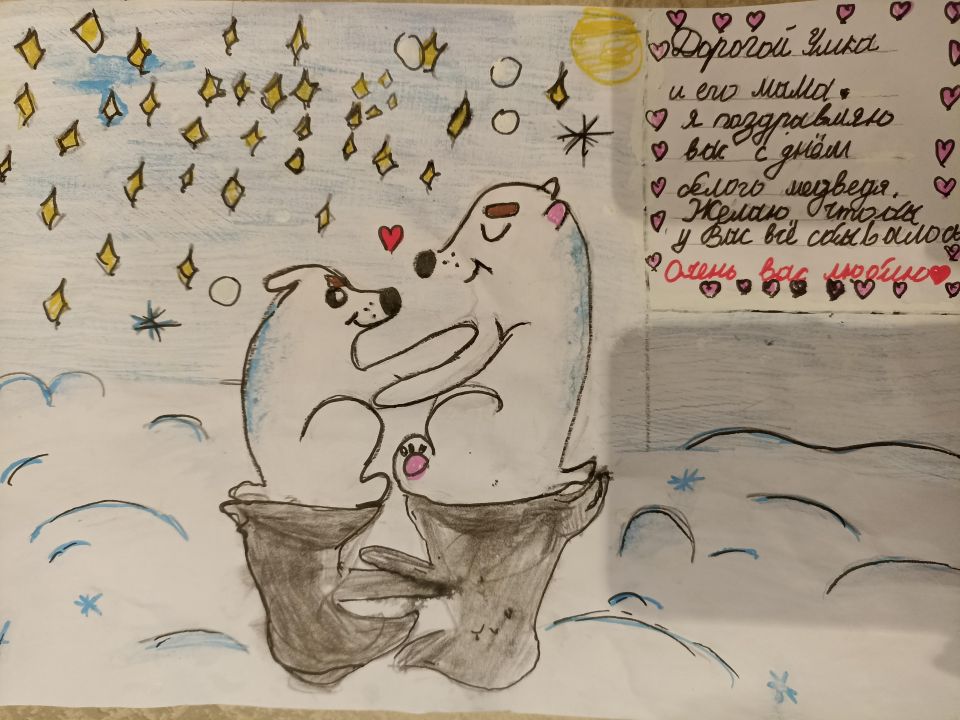 Дорогой Умка
и его мама.
я поздравляю
вас с днём
белого медведя.
Желаю чтобы
у Вас всё сбывалось
Очень вас люблю